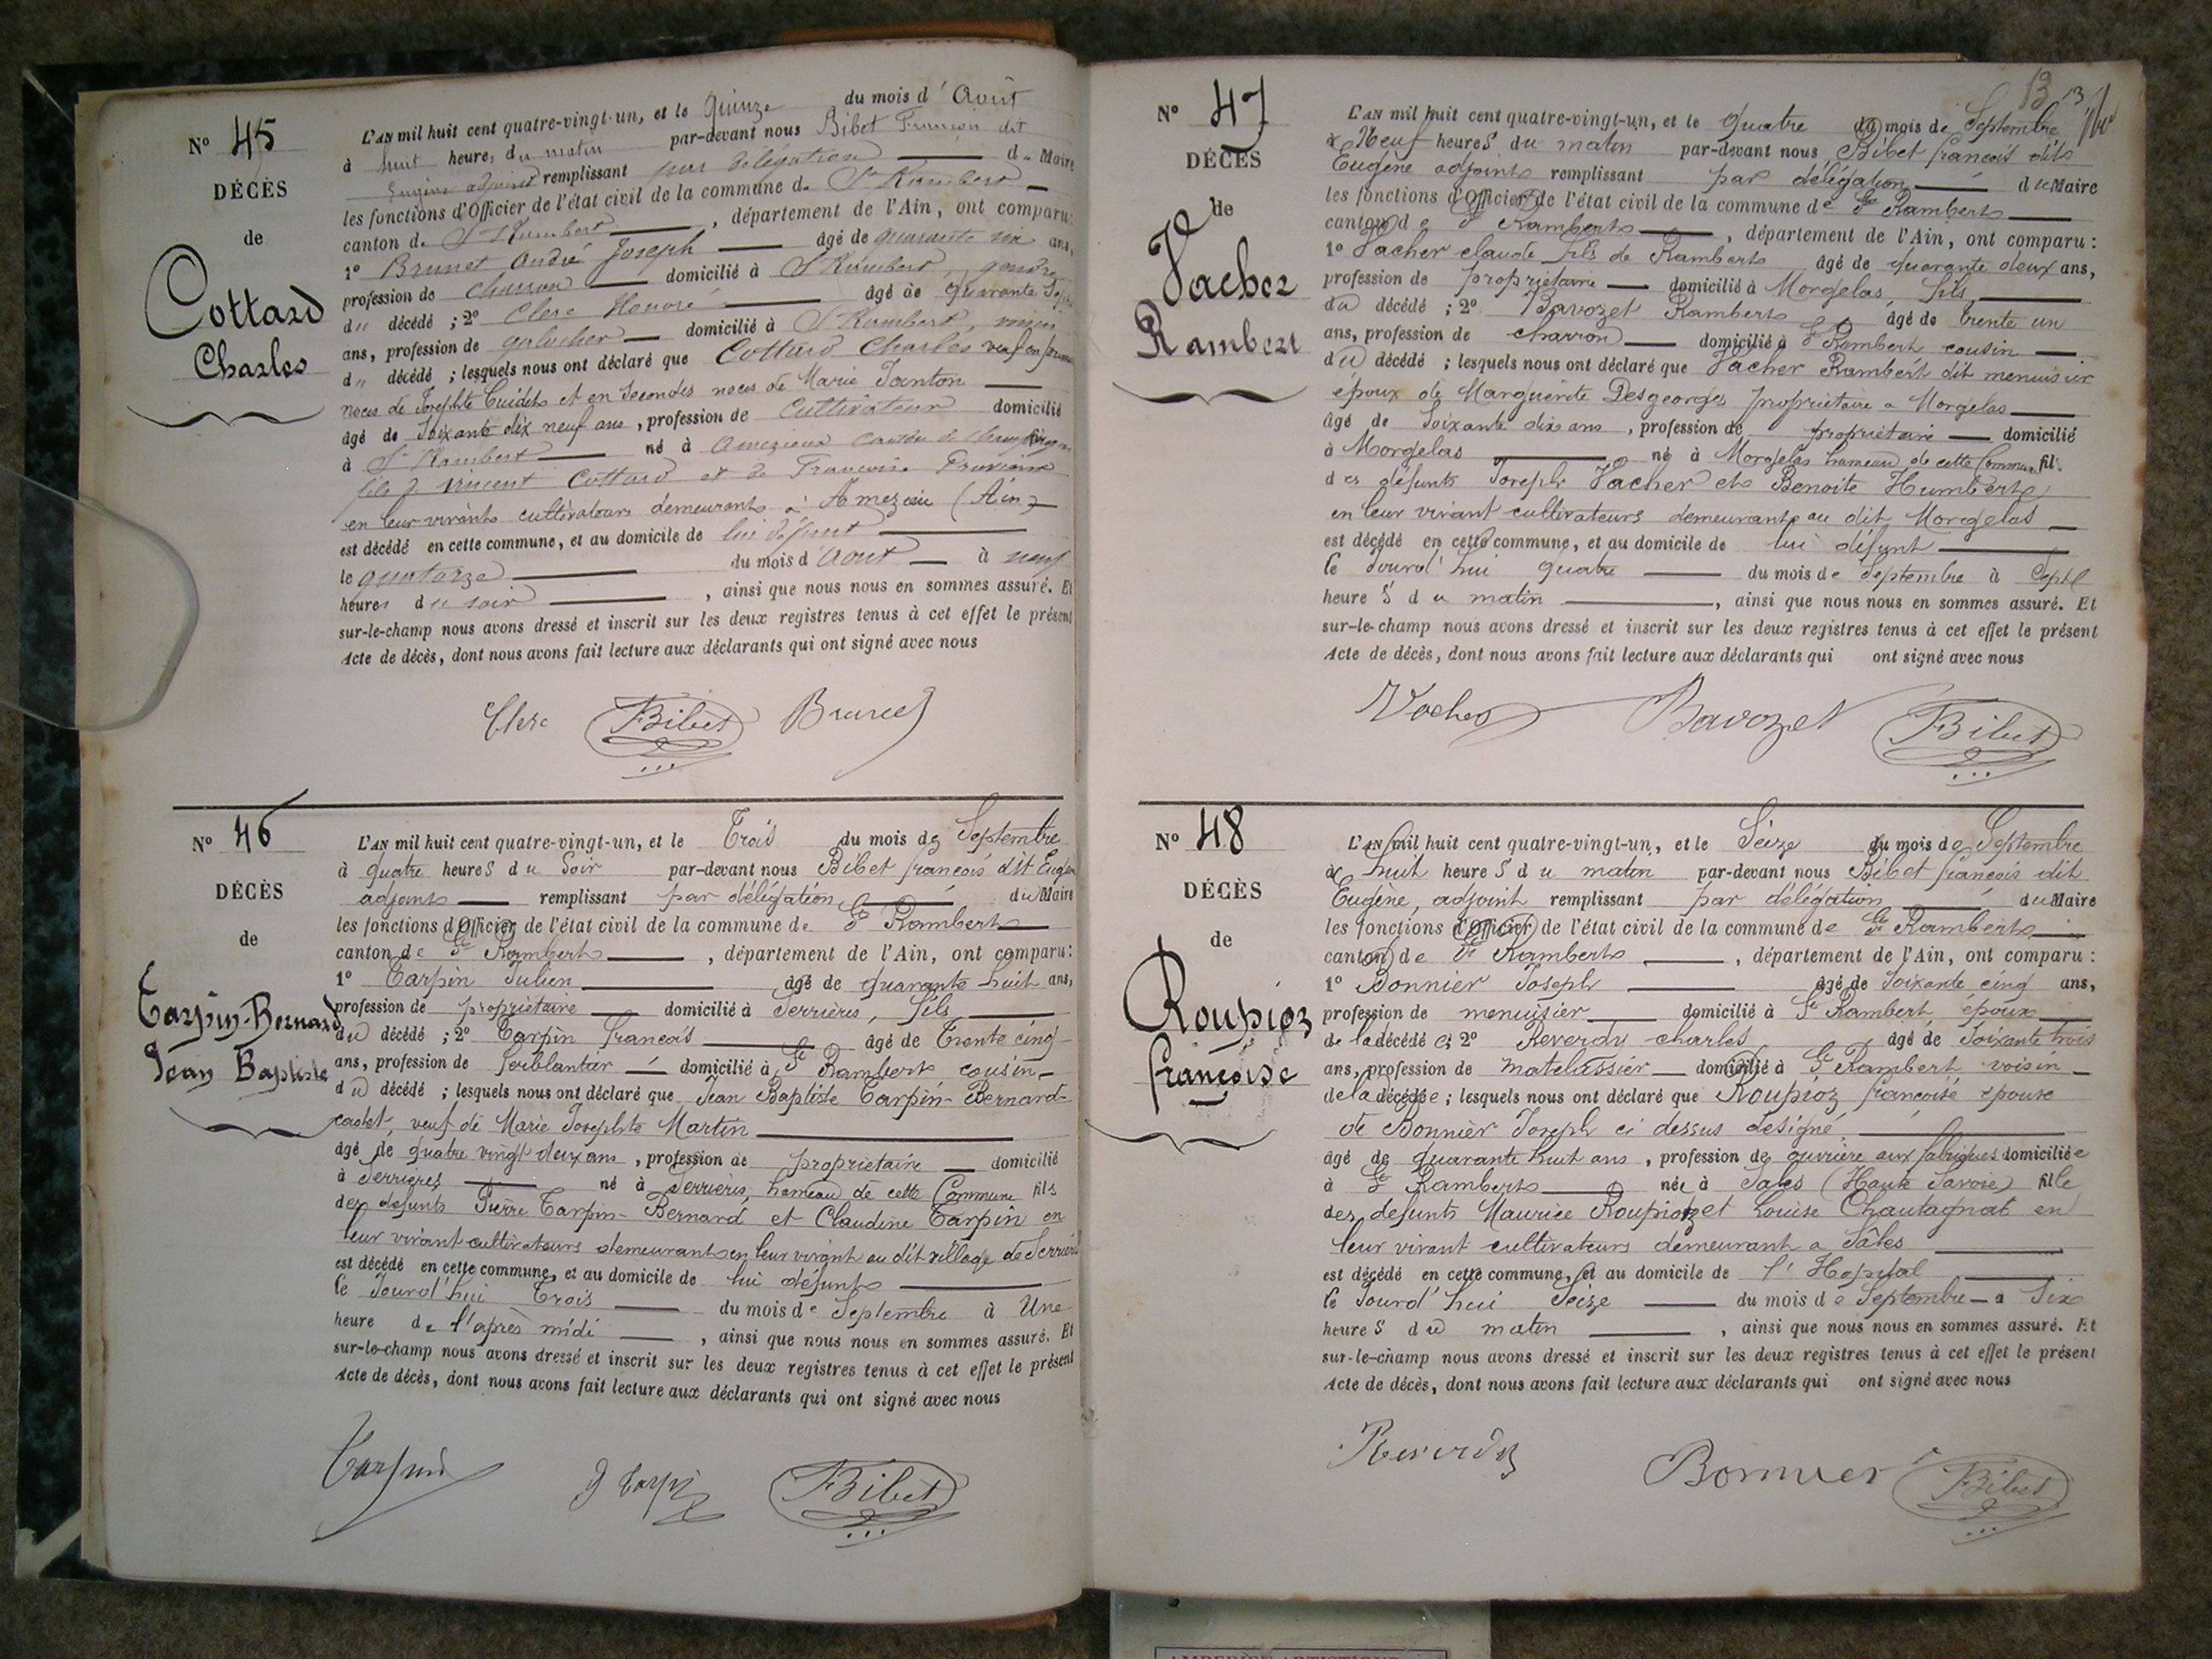 N° 45
DÉCÈS
de
Cottard
Charles
L'AN mil huit cent quatre-vingt-un, et le quinze du mois d'Août
à huit heure, du matin par-devant nous Bibet François dit
Eugène adjoint remplissant par délégation du Maire
les fonctions d'Officier de l'état civil de la commune de St Rambert
canton de St Rambert, département de l'Ain, ont comparu:
1° Brunet André Joseph âgé de quarante six ans,
profession de charron domicilié à St Rambert, gendre
du décédé ; 2° Clerc Honoré âgé de quarante
ans, profession de galocher domicilié à St Rambert, voisin
du décédé ; lesquels nous ont déclaré que Cottard Charles veuf en
noces de Josephte et en secondes noces de Marie Janton
âgé de Soixante dix neuf ans, profession de Cultivateur domicilié
à St Rambert né à Amezieux canton de
fils de Vincent Cottard et de Françoise
en leur vivants cultivateurs demeurants à Amezieu (Ain)
est décédé en cette commune, et au domicile de lui défunt
le quatorze du mois d'Août à neuf
heures du soir, ainsi que nous nous en sommes assuré. Et
sur-le-champ nous avons dressé et inscrit sur les deux registres tenus à cet effet le présent
Acte de décès, dont nous avons fait lecture aux déclarants qui ont signé avec nous
Clerc Bibet Brunet
N° 46
DÉCÈS
de
Tarpin-Bernard
Jean Baptiste
L'AN mil huit cent quatre-vingt-un, et le Trois du mois de Septembre
à quatre heures du Soir par-devant nous Bibet françois dit Eugène
adjoint remplissant par délégation du Maire
les fonctions d'Officier de l'état civil de la commune de St Rambert
canton de St Rambert, département de l'Ain, ont comparu:
1° Tarpin Julien âgé de quarante huit ans,
profession de propriétaire domicilié à Serrières, fils
du décédé ; 2° Tarpin François âgé de Trente cinq
ans, profession de ferblantier domicilié à St Rambert cousin
du décédé ; lesquels nous ont déclaré que Jean Baptiste Tarpin-Bernard-
cadet, veuf de Marie Josephte Martin
âgé de quatre vingt deux ans, profession de propriétaire domicilié
à Serrières né à Serrières, hameau de cette Commune fils
des défunts Pierre Tarpin-Bernard et Claudine Tarpin en
leur vivant cultivateurs demeurants en leur vivant au dit village de Serrières
est décédé en cette commune, et au domicile de lui défunt
le Jourd'hui Trois du mois de Septembre à Une
heure de l'après midi, ainsi que nous nous en sommes assuré. Et
sur-le-champ nous avons dressé et inscrit sur les deux registres tenus à cet effet le présent
Acte de décès, dont nous avons fait lecture aux déclarants qui ont signé avec nous
Tarpin J Tarpin Bibet
13 13
N° 47
DÉCÈS
de
Vacher
Rambert
L'AN mil huit cent quatre-vingt-un, et le Quatre du mois de Septembre
à Neuf heures du matin par-devant nous Bibet françois dit
Eugène adjoint remplissant par délégation du Maire
les fonctions d'Officier de l'état civil de la commune de St Rambert
canton de St Rambert, département de l'Ain, ont comparu:
1° Vacher claude fils de Rambert âgé de quarante deux ans,
profession de propriétaire domicilié à Morgelas, fils
du décédé ; 2° Bavozet Rambert âgé de trente un
ans, profession de charron domicilié à St Rambert cousin
du décédé ; lesquels nous ont déclaré que Vacher Rambert dit menuisier
époux de Marguerite Desgeorges propriétaire a Morgelas
âgé de Soixante dix ans, profession de propriétaire domicilié
à Morgelas né à Morgelas hameau de cette Commune fils
des défunts Joseph Vacher et Benoite Humbert
en leur vivant cultivateurs demeurant au dit Morgelas
est décédé en cette commune, et au domicile de lui défunt
le Jourd'hui quatre du mois de Septembre à Sept
heures du matin, ainsi que nous nous en sommes assuré. Et
sur-le-champ nous avons dressé et inscrit sur les deux registres tenus à cet effet le présent
Acte de décès, dont nous avons fait lecture aux déclarants qui ont signé avec nous
Vacher Bavozet Bibet
N° 48
DÉCÈS
de
Roupioz
françoise
L'AN mil huit cent quatre-vingt-un, et le Seize du mois de Septembre
à huit heures du matin par-devant nous Bibet françois dit
Eugène, adjoint remplissant par délégation du Maire
les fonctions d'Officier de l'état civil de la commune de St Rambert
canton de St Rambert, département de l'Ain, ont comparu:
1° Bonnier Joseph âgé de Soixante cinq ans,
profession de menuisier domicilié à St Rambert époux
de la décédée ; 2° Reverdy charles âgé de Soixante trois
ans, profession de matelassier domicilié à St Rambert voisin
de la décédée ; lesquels nous ont déclaré que Roupioz francoise épouse
de Bonnier Joseph ci dessus désigné
âgé de quarante huit ans, profession de ouvrière aux fabriques domiciliée
à St Rambert née à Sales (Haute Savoie) fille
des défunts Maurice Roupioz et Louise Chautagnat en
leur vivant cultivateurs demeurant a Sâles
est décédé en cette commune, et au domicile de l'Hopital
le Jourd'hui Seize du mois de Septembre à Six
heures du matin, ainsi que nous nous en sommes assuré. Et
sur-le-champ nous avons dressé et inscrit sur les deux registres tenus à cet effet le présent
Acte de décès, dont nous avons fait lecture aux déclarants qui ont signé avec nous
Reverdy Bonnier Bibet